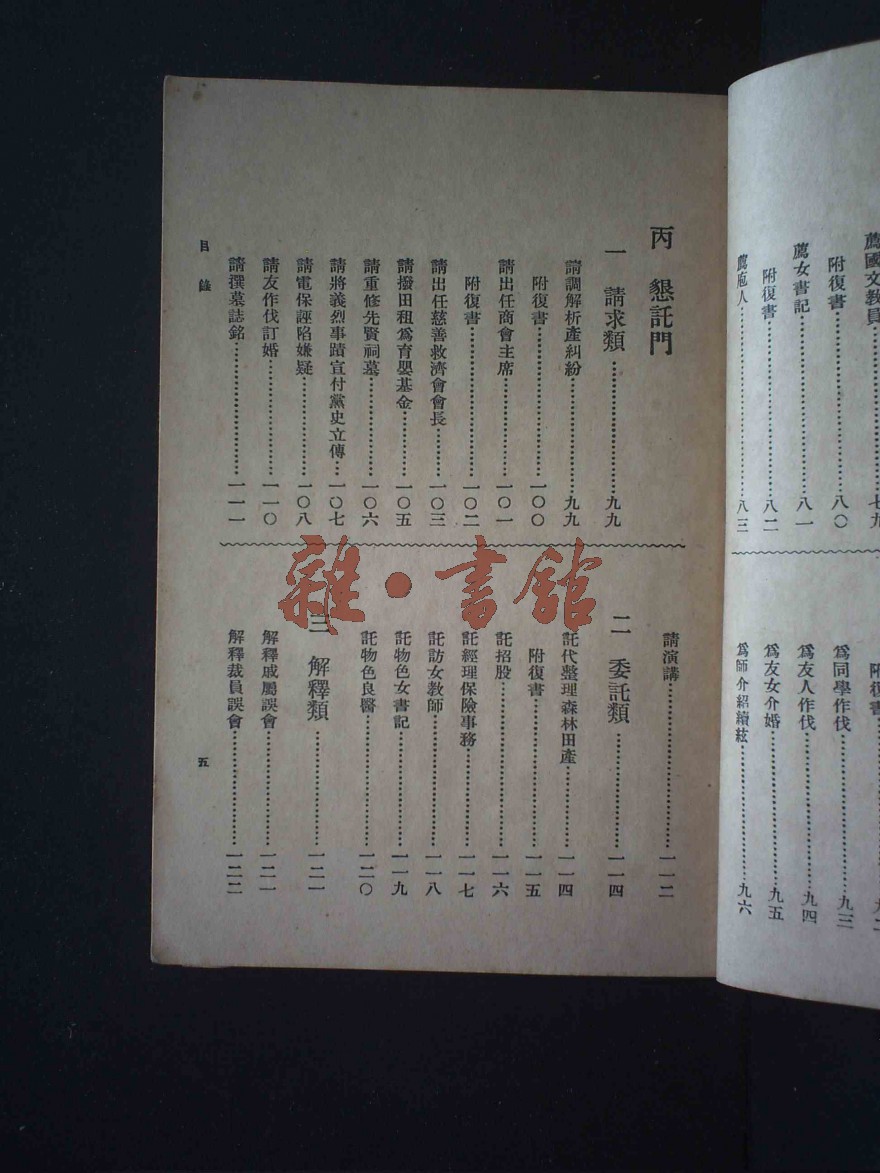 薦國文教員……七九
附復書……八〇
薦女書記……八一
附復書……八二
薦庖人……八三
附復書
為同學作伐……九三
為友人作伐……九四
為友女介婚……九五
為師介紹續絃……九六
丙 懇託門
一 請求類……九九
請調解析產糾紛……九九
附復書……一〇〇
請出任商會主席……一〇一
附復書……一〇二
請出任慈善救濟會會長……一〇三
請撥田租為育嬰基金……一〇五
請重修先賢祠墓……一〇六
請將義烈事蹟宣付黨史立傳……一〇七
請電保誣陷嫌疑……一〇八
請友作伐訂婚……一一〇
請撰墓誌銘……一一一
請演講……一一二
二 委託類……一一四
託代整理森林田產……一一四
附復書……一一五
託招股……一一六
託經理保險事務……一一七
託訪女教師……一一八
託物色女書記……一一九
託物色良醫……一二〇
三 解釋類……一二一
解釋戚屬誤會……一二一
解釋裁員誤會……一二二
目錄
五
雜·書館